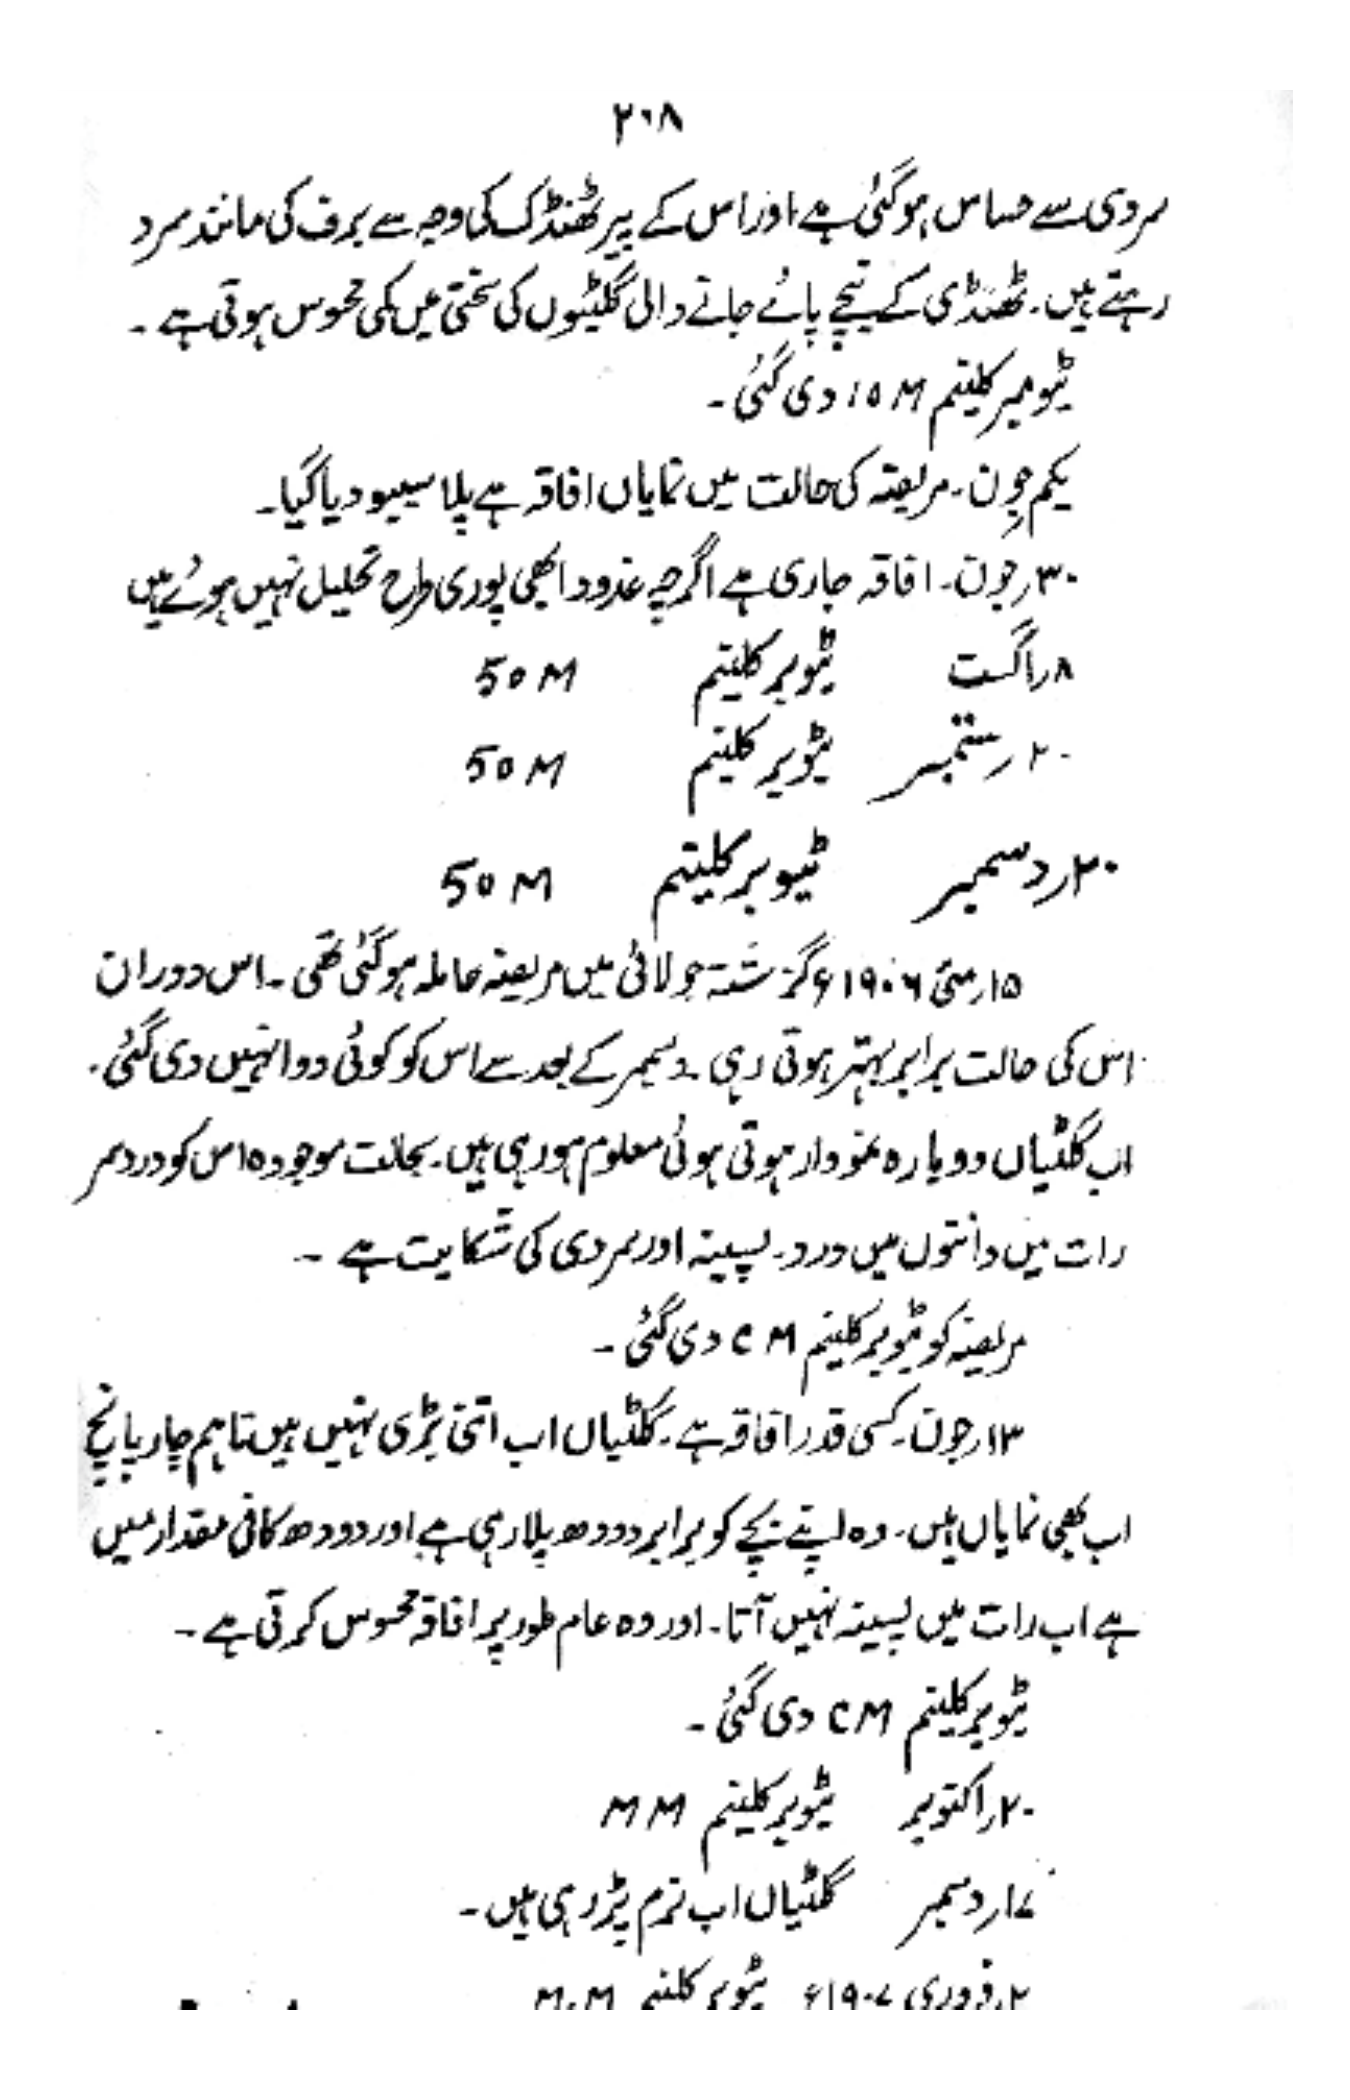 ۲۰۸
سردی سے حساس ہوگئی ہے اور اس کے پیر ٹھنڈک کی وجہ سے برف کی مانند سرد
رہتے ہیں۔ ٹھنڈی کے نیچے پائے جانے والی گلٹیوں کی سختی میں کمی محسوس ہوتی ہے۔
ٹیوبرکلینم 10M دی گئی۔
یکم جون۔ مریضہ کی حالت میں نمایاں افاقہ ہے پلاسیبو دیا گیا۔
۳۰ر جون۔ افاقہ جاری ہے اگرچہ غدود ابھی پوری طرح تحلیل نہیں ہوئے ہیں
۸ر اگست ٹیوبرکلینم 50M
۲۰ر ستمبر ٹیوبرکلینم 50M
۲۰ر دسمبر ٹیوبرکلینم 50M
۱۵ر مئی ۱۹۰۶ء گزشتہ جولائی میں مریضہ حاملہ ہوگئی تھی۔ اس دوران
اس کی حالت برابر بہتر ہوتی رہی۔ دسمبر کے بعد سے اس کو کوئی دوا نہیں دی گئی۔
اب گلٹیاں دوبارہ نمودار ہوتی ہوئی معلوم ہو رہی ہیں۔ بحالت موجودہ اس کو درد سر
رات میں دانتوں میں درد۔ پسینہ اور سردی کی شکایت ہے۔
مریضہ کو ٹیوبرکلینم CM دی گئی۔
۱۳ر جون۔ کسی قدر افاقہ ہے۔ گلٹیاں اب اتنی بڑی نہیں ہیں تاہم چار پانچ
اب بھی نمایاں ہیں۔ وہ اپنے بچے کو برابر دودھ پلا رہی ہے اور دودھ کافی مقدار میں
ہے اب رات میں پسینہ نہیں آتا۔ اور وہ عام طور پر افاقہ محسوس کرتی ہے۔
ٹیوبرکلینم CM دی گئی۔
۲۰ر اکتوبر ٹیوبرکلینم MM
۱۷ر دسمبر گلٹیاں اب نرم پڑ رہی ہیں۔
۲ر فروری ۱۹۰۷ء ٹیوبرکلینم M.M